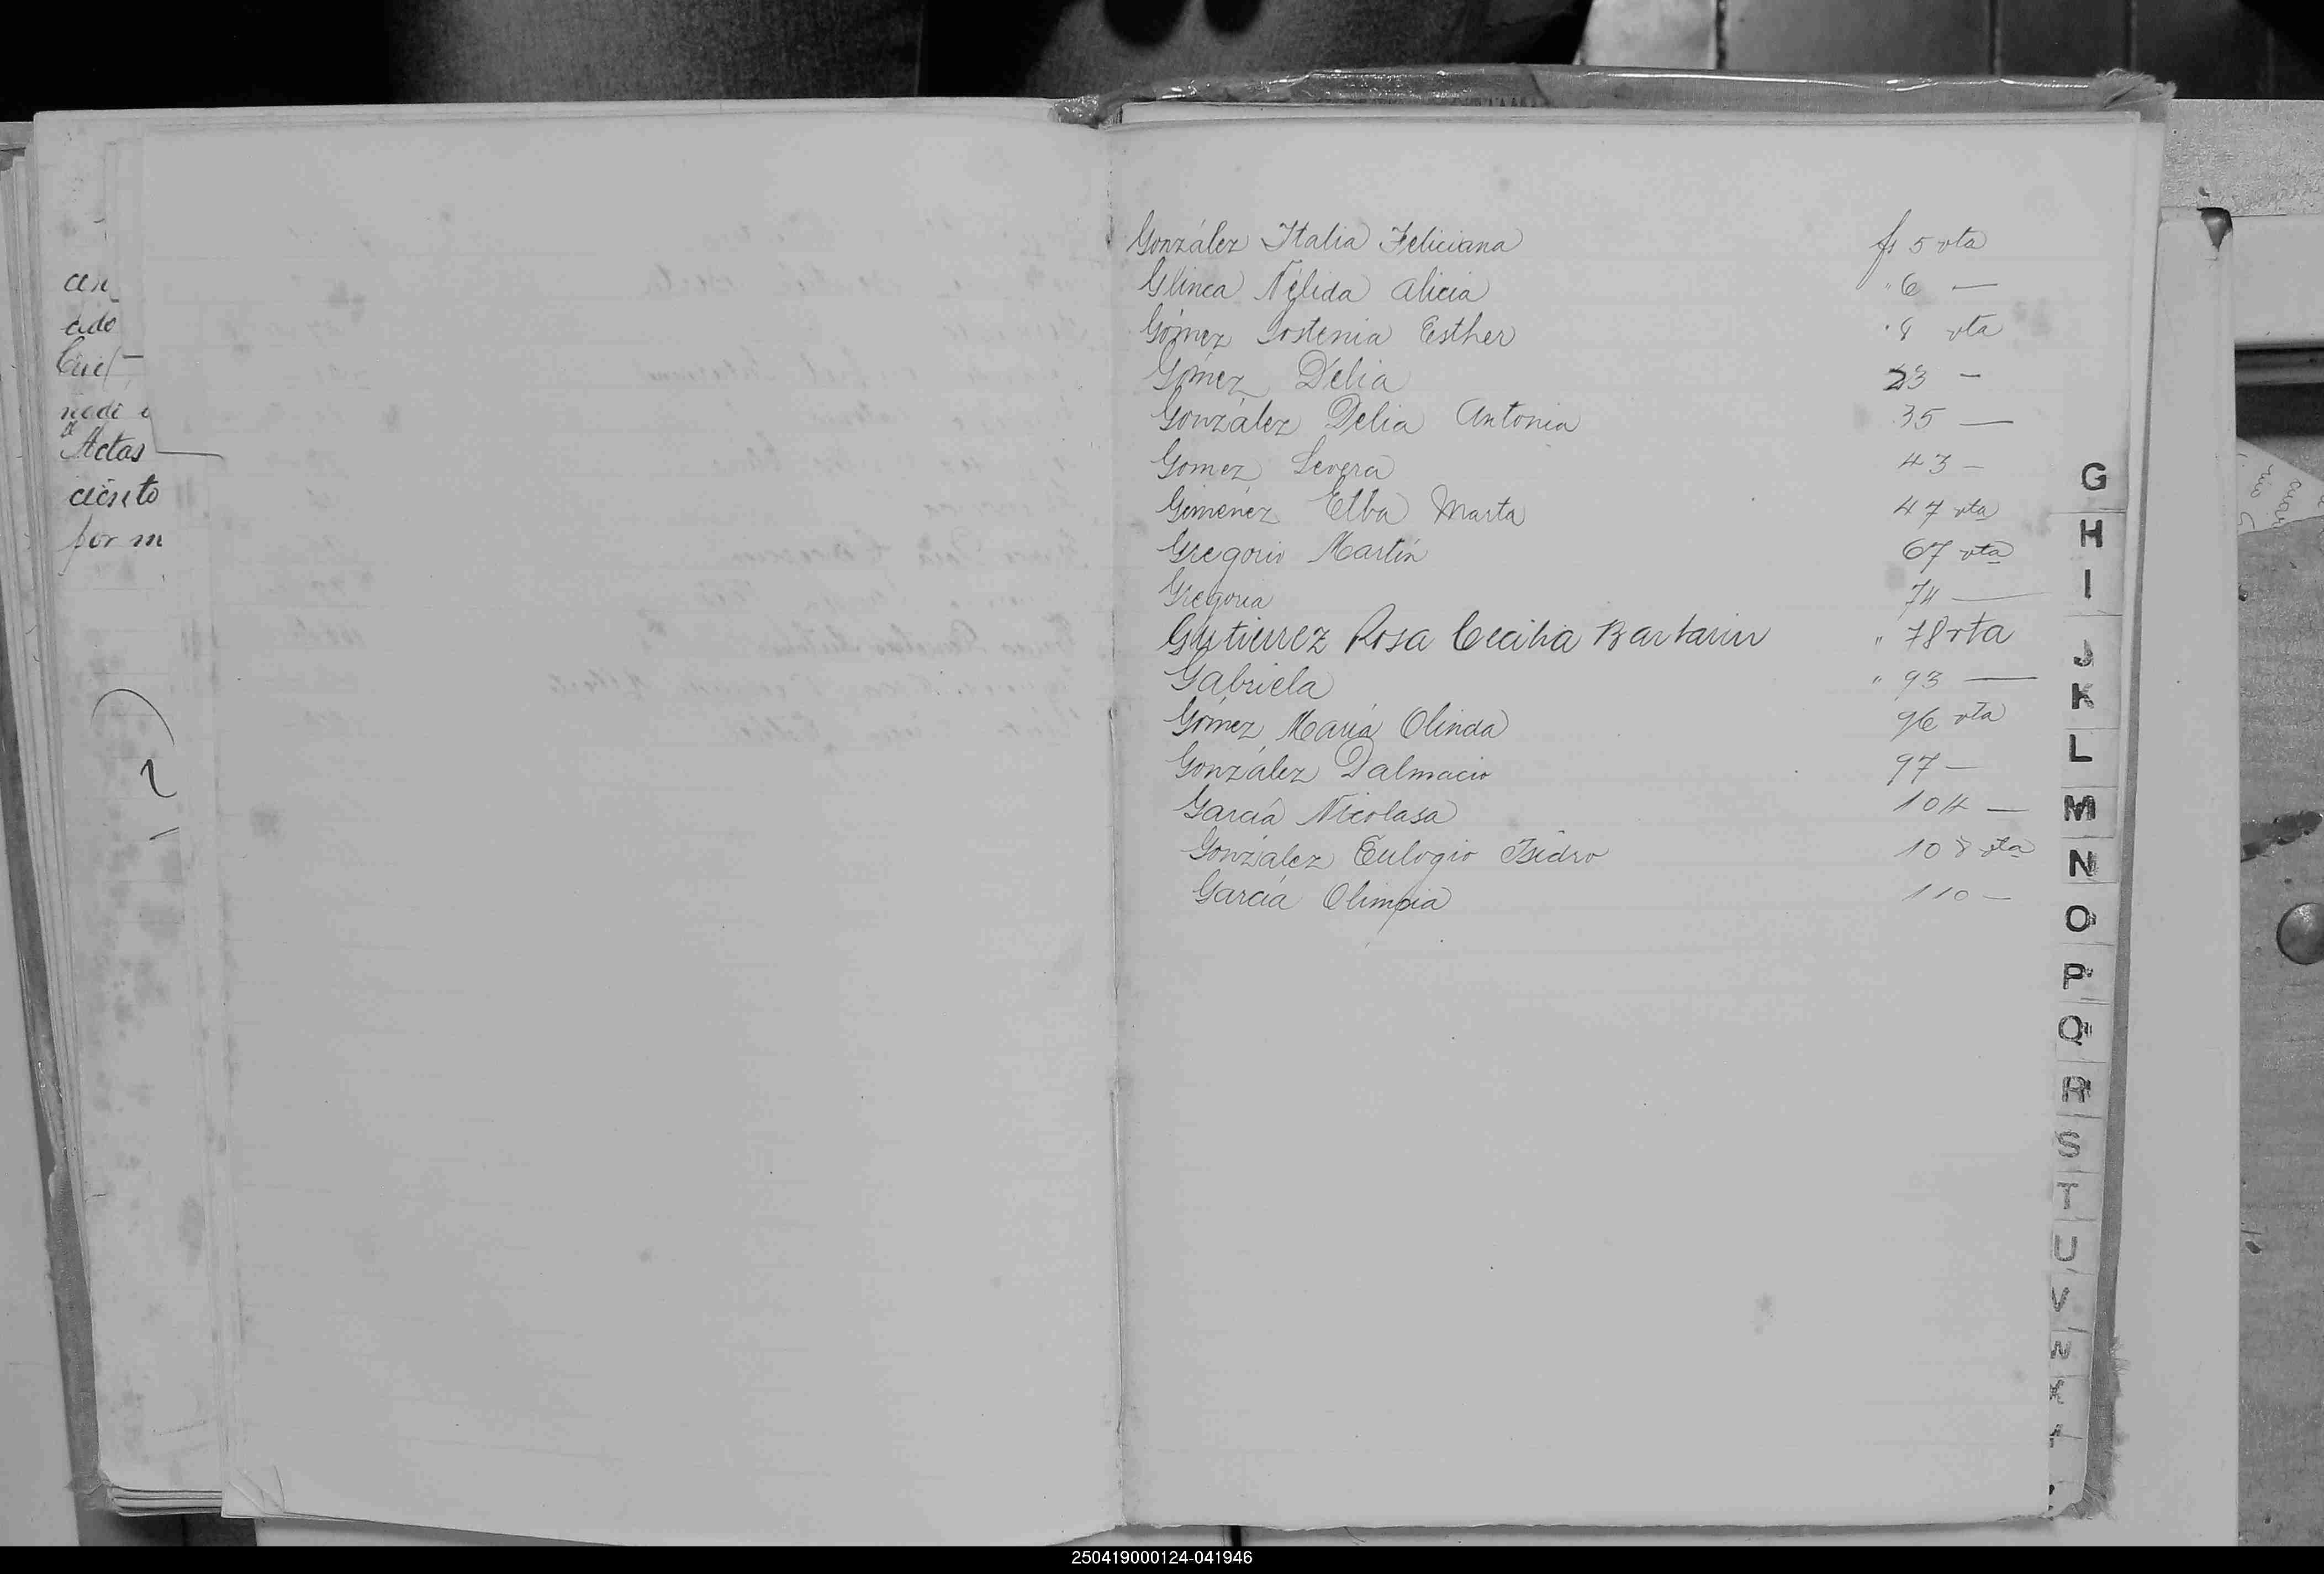 González Italia Feliciana fs 5 vta
Glinca Nélida Alicia " 6 —
Gómez Sostenia Esther " 8 vta
Gómez Delia 23 —
González Delia Antonia 35 —
Gomez Severa 43 —
Giménez Elba Marta 47 vta
Gregorio Martín 67 vta
Gregoria 74 —
Gutierrez Rosa Cecilia " 78 vta
Gabriela " 93 —
Gómez María Olinda 96 vta
González Dalmacio 97 —
García Nicolasa 104 —
González Eulogio Isidro 108 vta
García Olimpia 110 —
ado
Actas
ciento
por m
G
H
I
J
K
L
M
N
O
P
Q
R
S
T
U
V
W
X
250419000124-041946